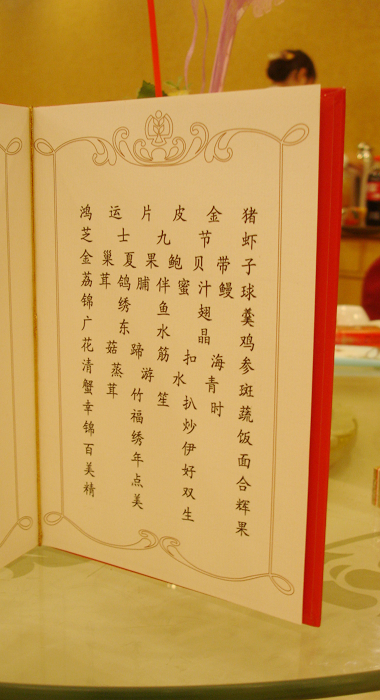 鸿运片皮金猪
芝士九节虾
金巢夏果鲍贝带子
荔茸鸽脯伴蜜汁鳗球
锦绣鱼翅羹
广东水晶鸡
花菇蹄筋扣海参
清蒸游水青斑
蟹茸竹笙扒时蔬
幸福炒饭
锦绣伊面
百年好合
美点双辉
精美生果